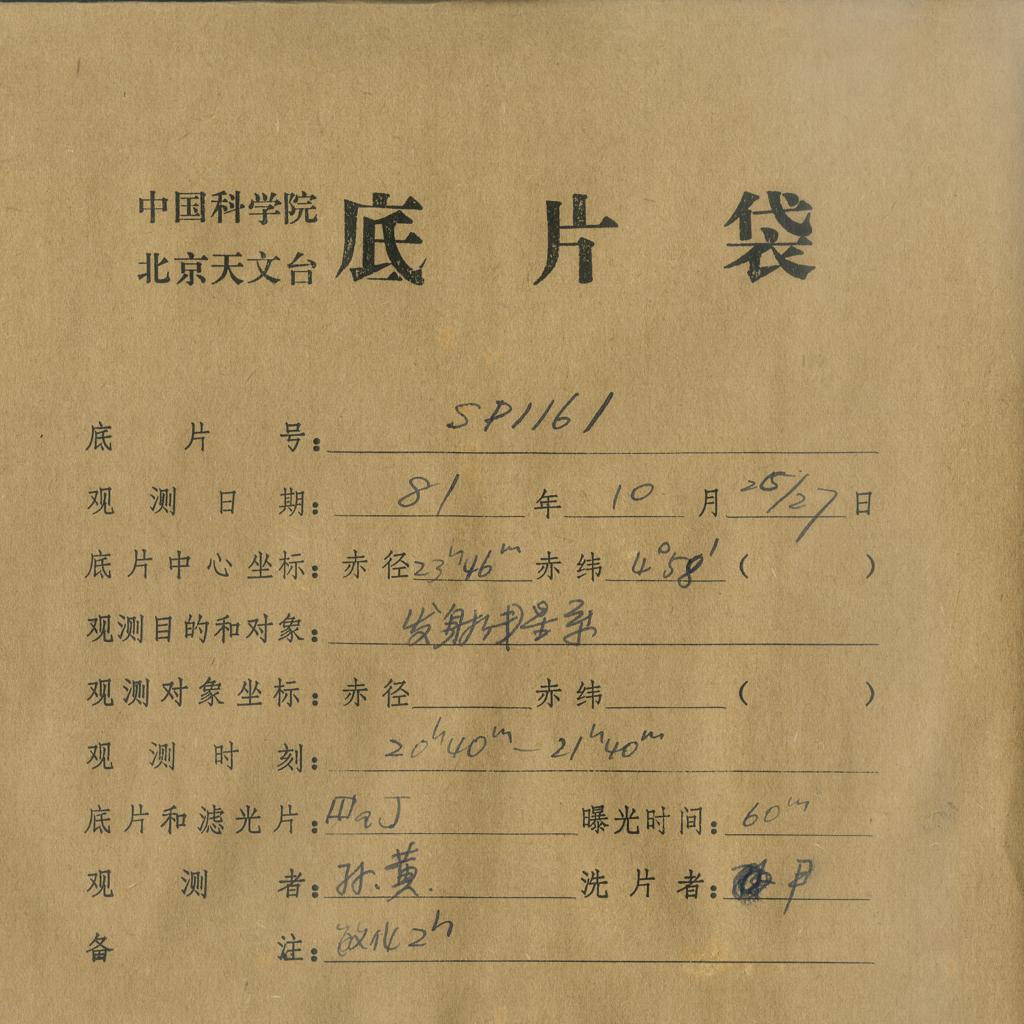 中国科学院
北京天文台
底片袋
底片号：SP1161
观测日期：81年10月25/27日
底片中心坐标：赤径23ʰ46ᵐ赤纬4°58′（ ）
观测目的和对象：发射线星系
观测对象坐标：赤径 赤纬 （ ）
观测时刻：20ʰ40ᵐ—21ʰ40ᵐ
底片和滤光片：ⅢaJ 曝光时间：60ᵐ
观测者：孙.黄. 洗片者：尹
备注：敏化2ʰ